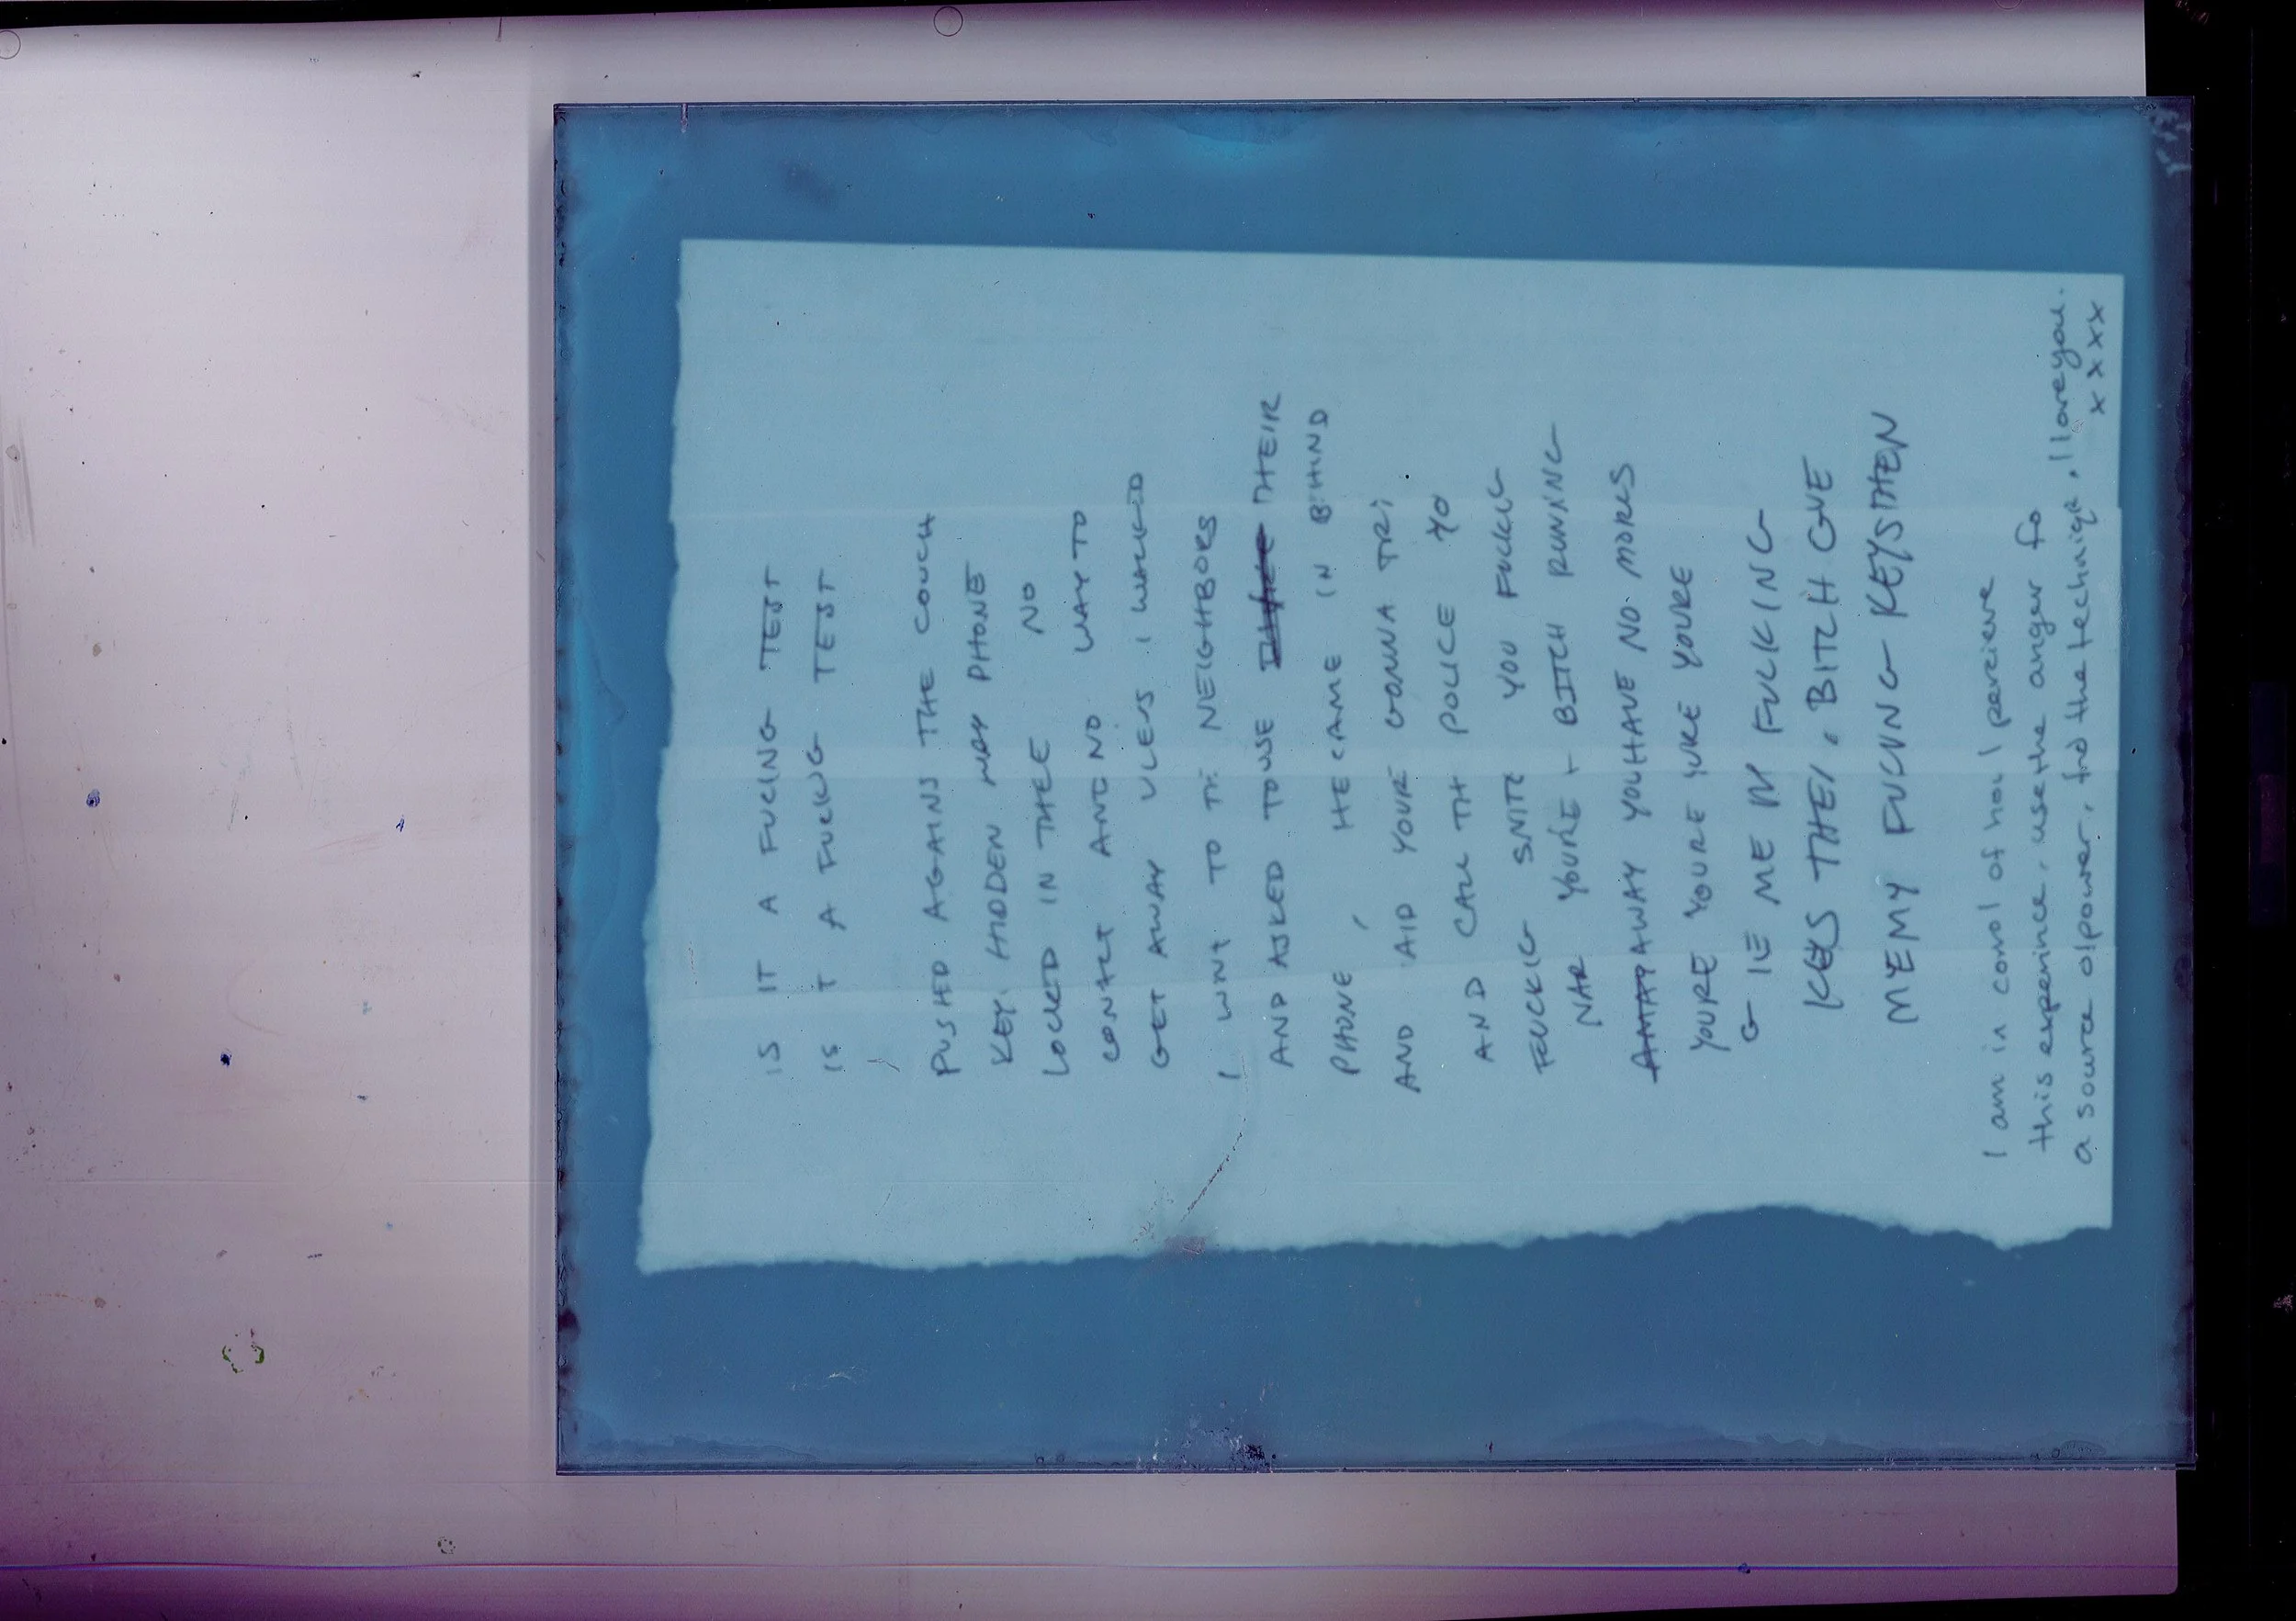 IS IT A FUCING TEST
IS T A FUCKNG TEST
PUSHED AGAINS THE COUCH
KEY HIDDEN MAY PHONE
LOCKED IN THEE NO
CONTACT AND NO WAY TO
GET AWAY ULESS I WALKED
I WNT TO TH NEIGHBORS
AND ASKED TO USE THEIR
PHONE, HE CAME IN BEHIND
AND AID YOURE GONNA TRI
AND CALL TH POLICE YO
FUCKIG SNITC YOU FUCKIG
NAR YOURE A BITCH RUNNING
AWAY YOU HAVE NO MORS
YOURE YOURE YURE YOURE
G IE ME M FUCKING
KEYS THEI, BITCH GIVE
MEMY FUCING KEYS THEN
I am in conrol of how I percieve
this experince, use the anger fo
a source ofpower, fnd the techniqe, I loveyou.
x x x x